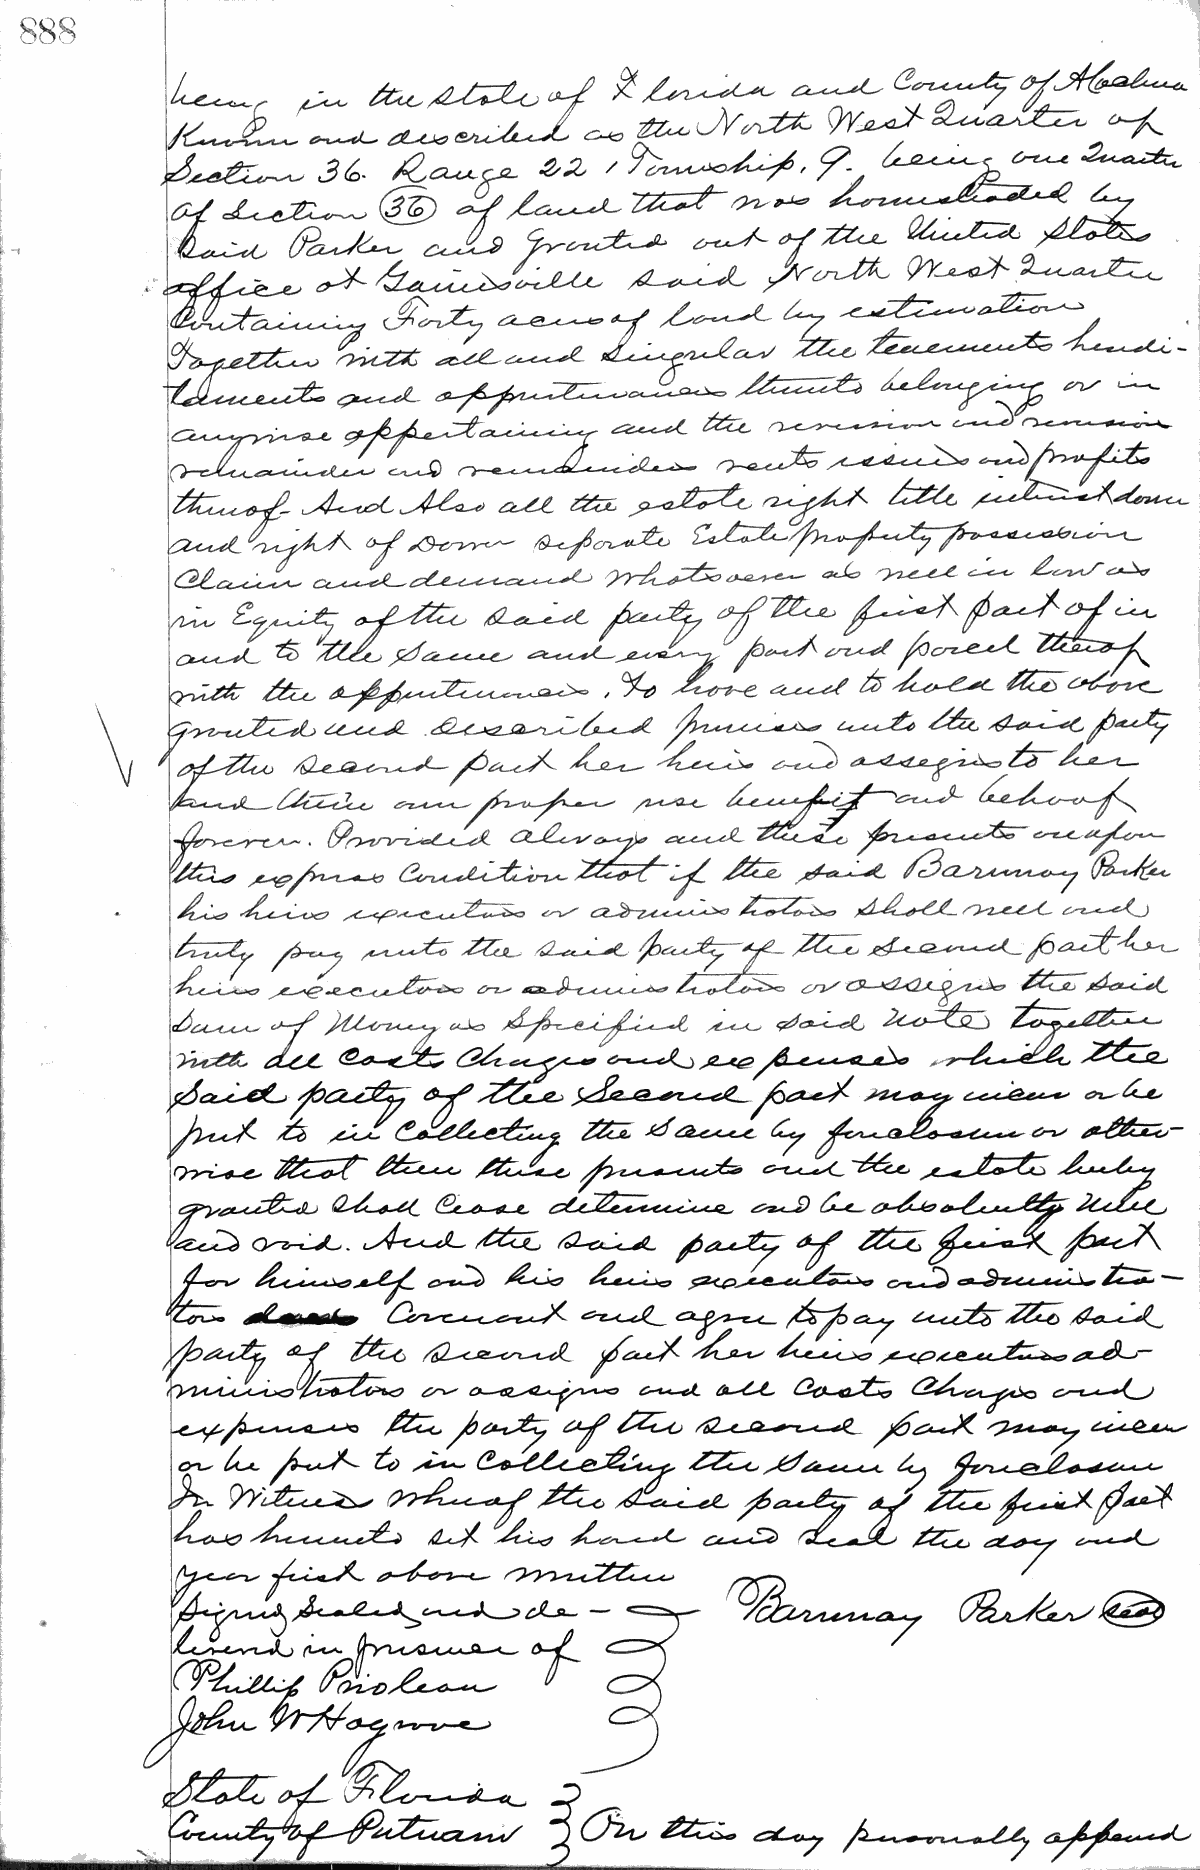 888
being in the State of Florida and County of Alachua
Known and described as the North West Quarter of
Section 36. Range 22, Township, 9. being one Quarter
of Section (36) of land that was homesteaded by
said Parker and Granted out of the United States
office at Gainesville said North West Quarter
Containing Forty acres of land by estimation
Together with all and singular the tenements heredi-
taments and appurtenances thereto belonging or in
anywise appertaining and the reversion and reversions
remainder and remainders rents issues and profits
thereof- And Also all the estate right title interest dower
and right of Dower seperate Estate property possession
Claim and demand whatsoever as well in law as
in Equity of the said party of the first part of in
and to the same and every part and parcel thereof
with the appurtenances. To have and to hold the above
granted and described premises unto the said party
of the second part her heirs and assigns to her
and their own proper use benefit and behoof
forever. Provided Always and these presents are upon
this express Condition that if the said Barnway Parker
his heirs executors or administrators shall well and
truly pay unto the said party of the second part her
heirs executors or administrators or assigns the said
Sum of Money as Specified in said note together
with all Costs Charges and expenses which the
said party of the Second part may incur or be
put to in Collecting the same by foreclosure or other-
wise that then these presents and the estate hereby
granted shall Cease determine and be absolutely Null
and void. And the said party of the first part
for himself and his heirs executors and administra-
tors Covenant and agree to pay unto the said
party of the second part her heirs executors ad-
ministrators or assigns and all Costs Charges and
expenses the party of the second part may incur
or be put to in Collecting the same by foreclosure
In Witness Whereof the said party of the first part
has hereunto set his hand and seal the day and
year first above written
Signed Sealed and de- Barnway Parker (seal)
livered in presence of
Phillip Prioleau
John W Hagrove
State of Florida
County of Putnam On this day personally appeared